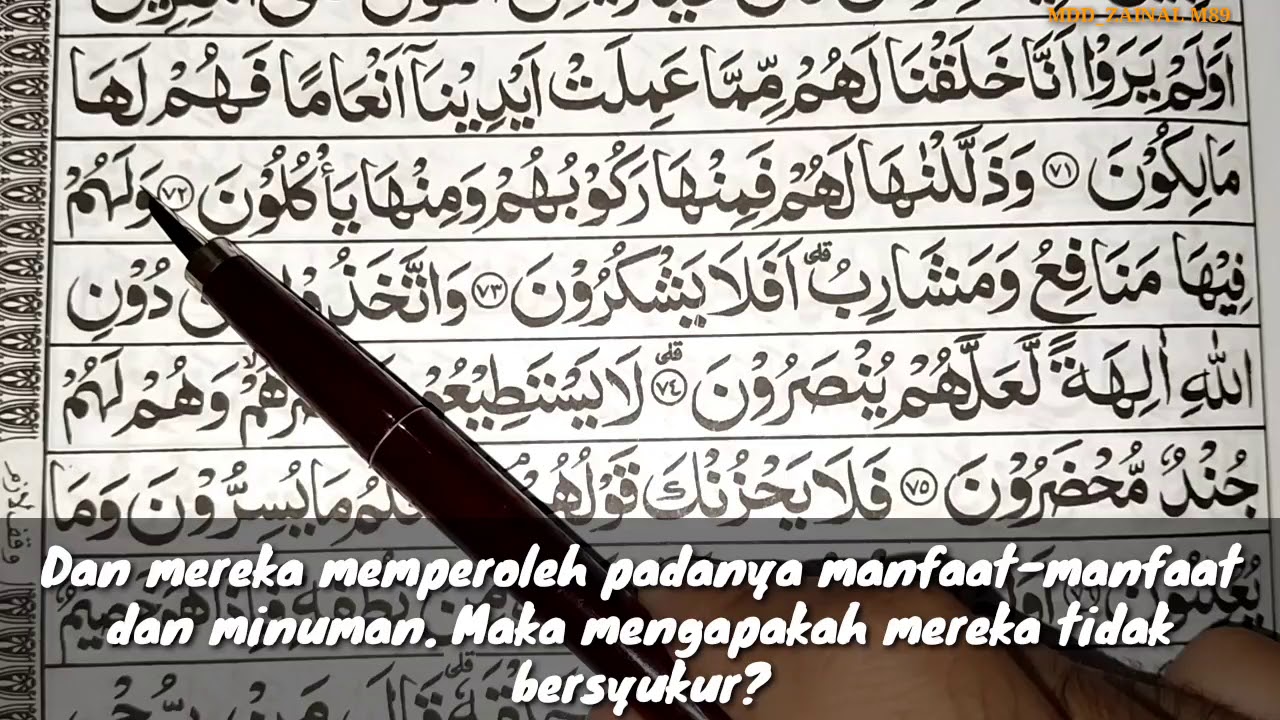 MDD_ZAINAL M89
اَوَلَمْ يَرَوْا اَنَّا خَلَقْنَا لَهُمْ مِّمَّا عَمِلَتْ اَيْدِيْنَآ اَنْعَامًا فَهُمْ لَهَا
مَالِكُوْنَ ٧١ وَذَلَّلْنٰهَا لَهُمْ فَمِنْهَا رَكُوْبُهُمْ وَمِنْهَا يَأْكُلُوْنَ ٧٢ وَلَهُمْ
فِيْهَا مَنَافِعُ وَمَشَارِبُۗ اَفَلَا يَشْكُرُوْنَ ٧٣ وَاتَّخَذُوْا دُوْنِ
اللّٰهِ اٰلِهَةً لَّعَلَّهُمْ يُنْصَرُوْنَ ۗ ٧٤ لَا يَسْتَطِيْعُوْ وَهُمْ لَهُمْ
جُنْدٌ مُّحْضَرُوْنَ ٧٥ فَلَا يَحْزُنْكَ قَوْلُهُمْ مَا يُسِرُّوْنَ وَمَا
يُعْلِنُوْنَ ٧٦ نُطْفَةٍ فَاِذَا هُوَ خَصِيْمٌ
Dan mereka memperoleh padanya manfaat-manfaat
dan minuman. Maka mengapakah mereka tidak
bersyukur?